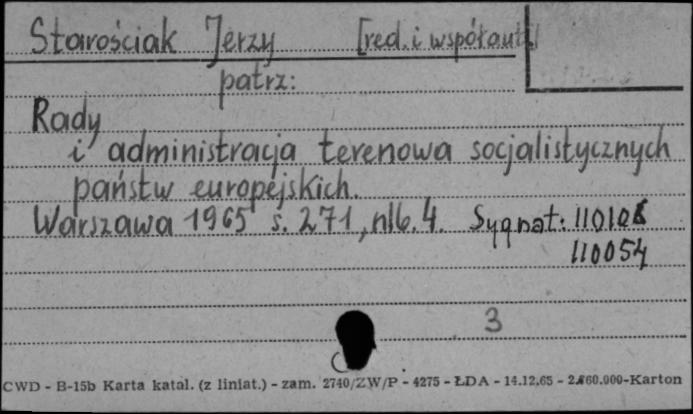 Starościak Jerzy [red. i współaut.]
patrz:
Rady
i administracja terenowa socjalistycznych
państw europejskich.
Warszawa 1965 s. 271, nlb. 4. Sygnat:
110054
3
CWD - B-15b Karta katal. (z liniat.) - zam. 2740/ZW/P - 4275 - ŁDA - 14.12.65